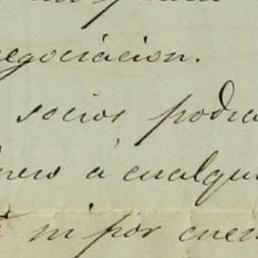 negociacion.
socios podra
nero á cualqu
ni por cuen